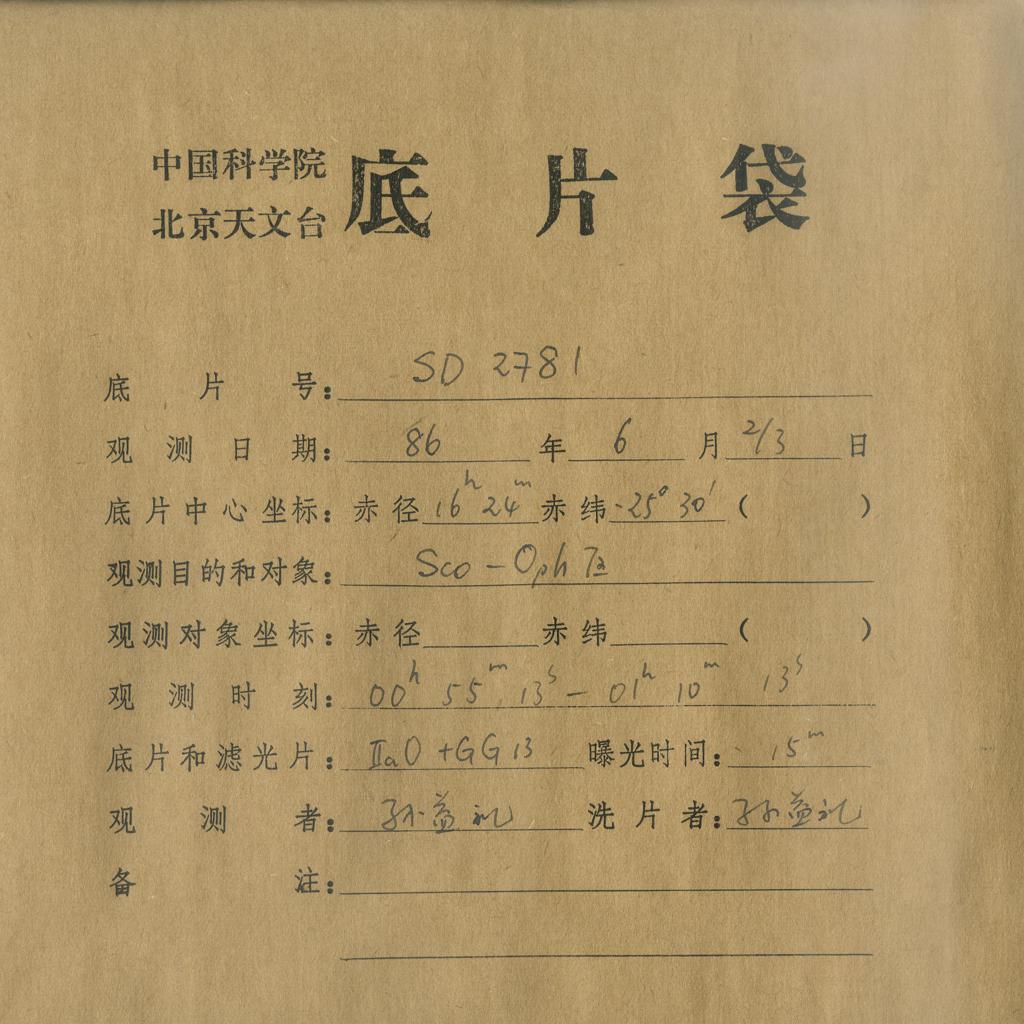 中国科学院
北京天文台
底片袋
底片号: SD 2781
观测日期: 86 年 6 月 2/3 日
底片中心坐标: 赤径 16h 24m 赤纬 -25° 30′ ( )
观测目的和对象: Sco - Oph 区
观测对象坐标: 赤径 赤纬 ( )
观测时刻: 00h 55m 13s - 01h 10m 13s
底片和滤光片: IIaO + GG 13 曝光时间: 15m
观测者: 孙益礼 洗片者: 孙益礼
备注: